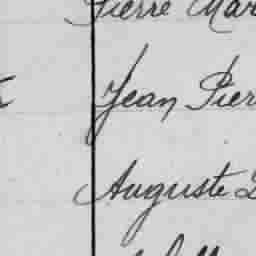 Pierre Mar
Jean Pier
Auguste